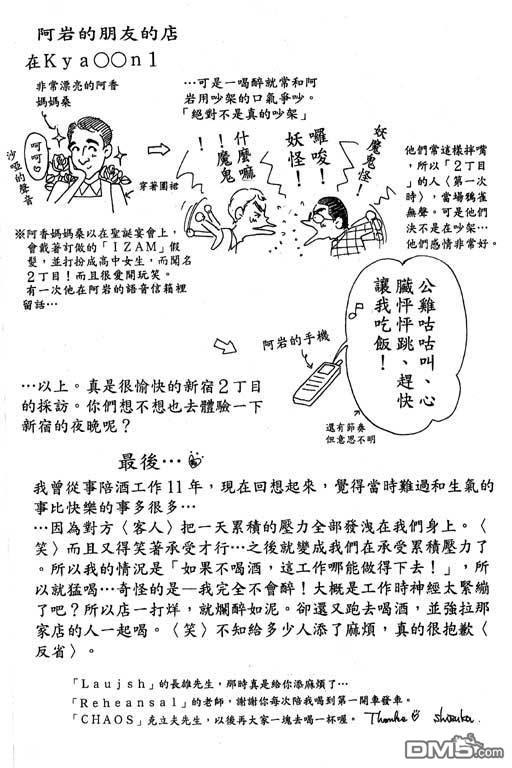 阿岩的朋友的店
在Kya○○n1
非常漂亮的阿香
媽媽桑
呵呵♡
沙啞的聲音
穿著圍裙
…可是一喝醉就常和阿
岩用吵架的口氣爭吵。
「絕對不是真的吵架」
妖魔鬼怪！
囉唆！
妖怪！
什麼嘛！
魔鬼！
他們常這樣拌嘴
，所以「2丁目」
的人〈第一次
時〉，當場鴉雀
無聲。可是他們
決不是在吵…
他們感情非常好。
※阿香媽媽桑以在聖誕宴會上，
會戴著訂做的「IZAM」假
髮，並打扮成高中女生，而聞名
2丁目！而且很愛開玩笑。
有一次他在阿岩的語音信箱裡
留話…
公雞咕咕叫、心
臟怦怦跳、趕快
讓我吃飯！
阿岩的手機
還有節奏
但意思不明
…以上。真是很愉快的新宿2丁目
的採訪。你們想不想也去體驗一下
新宿的夜晚呢？
最後…
我曾從事陪酒工作11年，現在回想起來，覺得當時難過和生氣的
事比快樂的事多很多…
…因為對方〈客人〉把一天累積的壓力全部發洩在我們身上。〈
笑〉而且又得笑著承受才行…之後就變成我們在承受累積壓力了
。所以我的情況是「如果不喝酒，這工作哪能做得下去！」，所
以就猛喝…奇怪的是—我完全不會醉！大概是工作時神經太緊繃
了吧？所以店一打烊，就爛醉如泥。卻還又跑去喝酒，並強拉那
家店的人一起喝。〈笑〉不知給多少人添了麻煩，真的很抱歉〈
反省〉。
「Laujsh」的長雄先生，那時真是給你添麻煩了…
「Reheansal」的老師，謝謝你每次陪我喝到第一開車發車。
「CHAOS」克立夫先生，以後再大家一塊去喝一杯喔。 Thanks♡ shizuka.
DM5.com